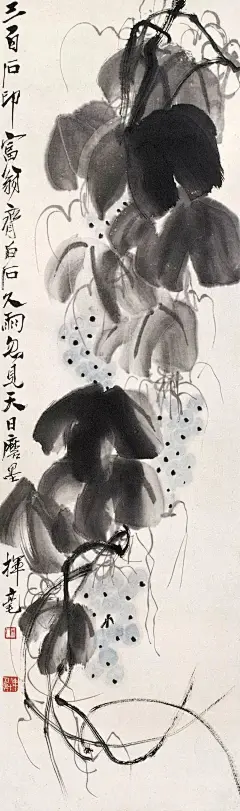 三百石印富翁齊白石久雨忽見天日磨墨
揮毫